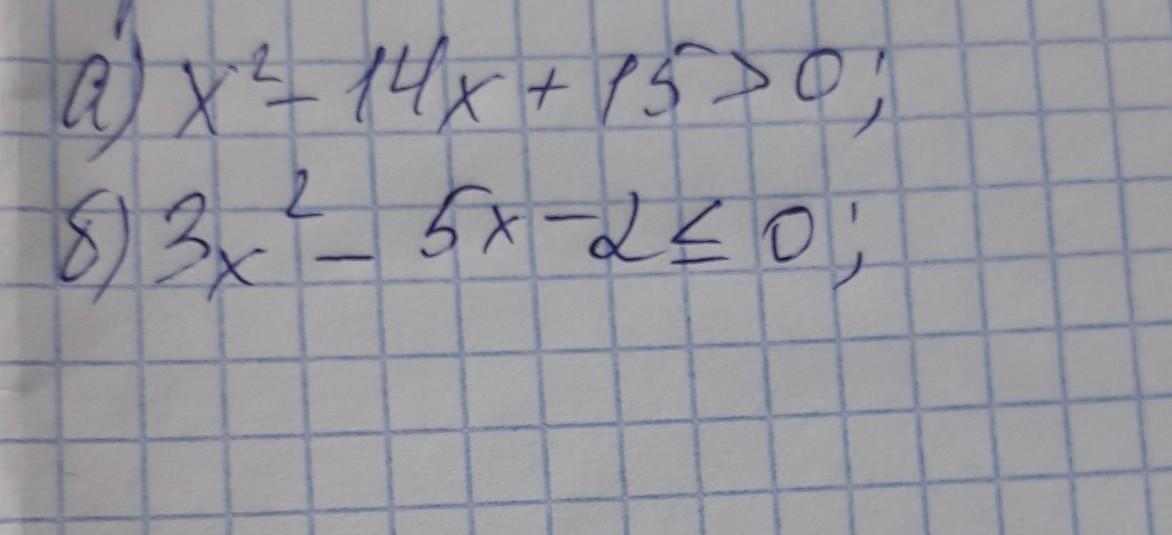 а) x² - 14x + 15 > 0;
б) 3x² - 5x - 2 ≤ 0;